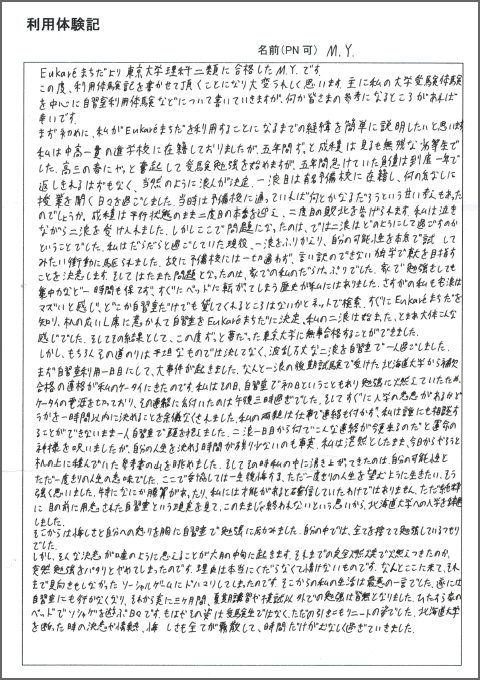 利用体験記
名前(PN可) M.Y.
Eukaréまちだより東京大学理科二類に合格したM.Y.です。
この度、利用体験記を書かせて頂くことになり大変うれしく思います。主に私の大学受験体験
を中心に自習室利用体験などについて書いていきますが、何か皆さまの参考になるところがあれば
幸いです。
まず初めに、私がEukaréまちだを利用することになるまでの経緯を簡単に説明したいと思います。
私は中高一貫の進学校に在籍しておりましたが、五年間ずっと成績は見るも無残な劣等生で
した。高三の春にやっと奮起して受験勉強を始めますが、五年間怠けていた負債は到底一年で
返しきれるはずもなく、当然のように浪人が決定。一浪目は有名予備校に在籍し、何の気なしに
授業を聞く日々を過ごしました。当時は予備校に通っていれば何とかなるだろうという甘い考えもあった
のでしょうか、成績は平行状態のまま二度目の本番を迎え、二度目の敗北を告げられます。私は泣き
ながら二浪を受け入れました。しかしここで問題になったのは、では二浪はどのようにして過ごすのか
ということでした。私はだらだらと過ごしていた現役、一浪をふりかえり、自分の可能性を本気で試して
みたい衝動に駆られました。故に予備校には一切通わず、言い訳のできない独学で東大を目指す
ことを決意します。そしてはたまた問題となったのは、家での私のだらけっぷりでした。家で勉強しても
集中力など一時間も保てず、すぐにベッドに転がってしまう歴史が私にはありました。さすがの私も宅浪は
マズいと感じ、どこか自習室だけでも貸してくれるところはないかとネットで検索、すぐにEukaréまちだを
知り、机の広い上席に惹かれて自習室をEukaréまちだに決定、私の二浪は始まった、とまあ大体こんな
感じでした。そしてその結果として、この度ずっと夢だった東京大学に無事合格することができました。
しかし、もちろんその道のりは平坦なものでは決してなく、波乱万丈な二浪を自習室で一人過ごしました。
まず自習室利用一日目にして、大事件が起きました。なんと一浪の後期試験で受けた北海道大学から補欠
合格の連絡が私のケータイにきたのです。私はその日、自習室で初日ということもあり勉強にど燃えていたため、
ケータイの電源を切っており、その連絡に気付いたのは午後三時過ぎでした。そしてすぐに入学の意志があるかど
うかを一時間以内に決めることを余儀なくされました。私の両親は仕事で連絡も付かず、私は誰にも相談す
ることができないまま一人自習室で頭を抱えました。二浪一日目から何でこんな連絡が今頃来るのだと運命の
神様を呪いましたが、自分の人生を決める時間が残り少ないのも事実、私は茫然としたまま、今日からやろうと
机の上に積んでいた参考書の山を眺めました。そしてその時私の中に湧き上がってきたのは、自分の可能性と
ただ一度きりの人生の意味でした。ここで妥協しては一生後悔する、ただ一度きりの人生を望むように生きたい、そう
強く思いました。特になにか勝算があったり、私には才能があると確信していたわけではありません。ただ純粋
に目の前に用意された自習室という環境を見て、このまましゃ終われないという思いから、北海道大学への入学を辞退
しました。
そこからは悔しさと自分への怒りを胸に自習室で勉強に励みました。自分の中では、全てを捨てて勉強しているつもり
でした。
しかし、そんな決意が嘘のように思えることが六月の中旬に起きます。それまでの完全燃焼状態で燃えつきたのか、
突然勉強をパタリとやめてしまったのです。理由は本当にくだらなくて情けないものです。なんとここに来て、それ
まで見向きもしなかったソーシャルゲームにドハマりしてしまったのです。そこからの私の生活は最悪の一言でした。遂には
自習室にも行かなくなり、それから実に三ヶ月間、夏期講習や模試以外での勉強は皆無となりました。ひたすら家の
ベッドでソシャゲを遊ぶ日々です。もはやその姿は受験生ではなく、ただの引きこもりニートの姿でした。北海道大学
を断った時の決意や情熱、悔しさも全てが霧散して、時間だけがむなしく過ぎていきました。